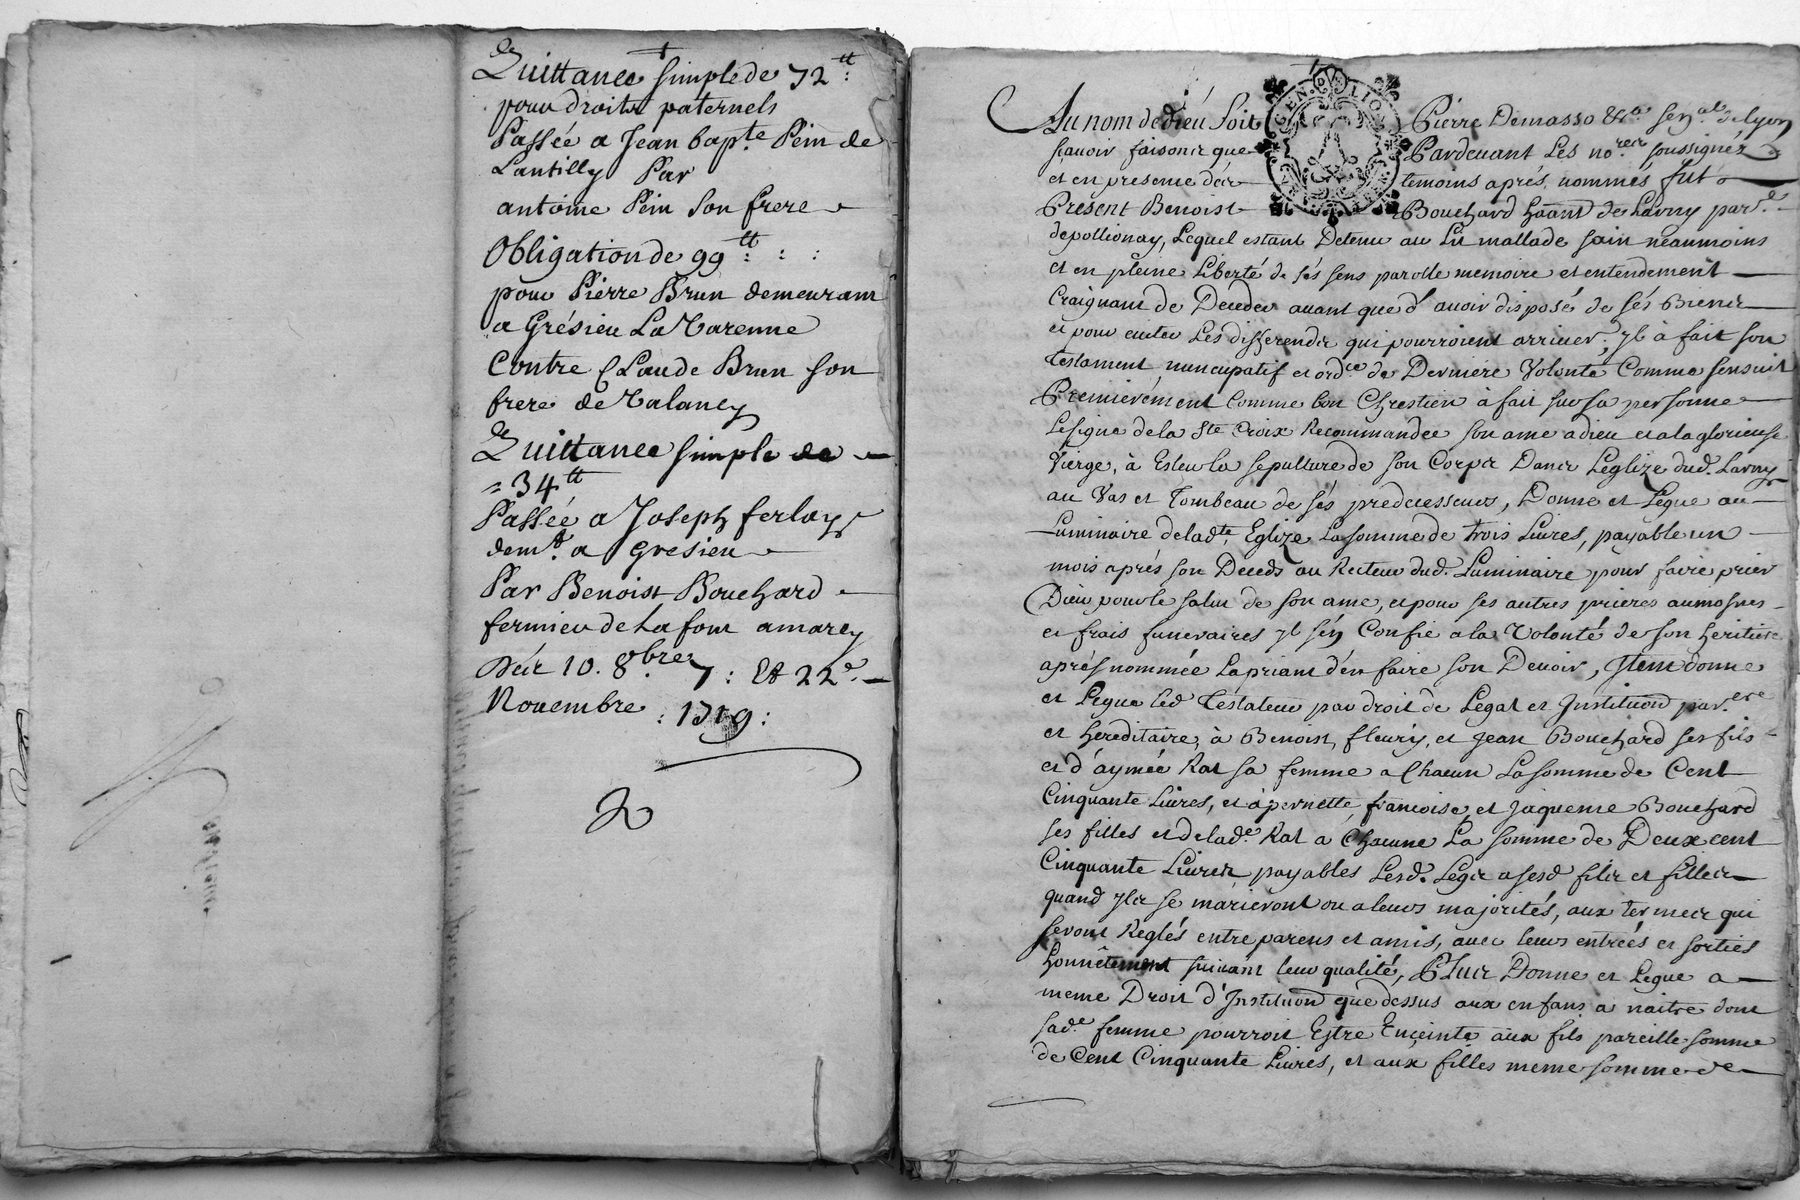 Quittance simple de 72tt:
pour droits paternels
Passée a Jean bapte Pein de
Lantilly Par
antoine Pein son frere
Obligation de 99tt : :
pour Pierre Brun demeurant
a Grésieu La Varenne
Contre Claude Brun son
frere de Valancy
Quittance simple de
= 34tt
Passée a Joseph ferlay
demt a Gresieu
Par Benoist Bouchard
fermieu de La font a marcy
Des 10. 8bres 7: Et 22e
Novembre : 1719:
GEN. LION
Au nom de dieu soit Pierre Demasso &ca senal de lyon
scavoir faisons que Pardevant Les nores soussignés
et en presence des temoins aprés nommés fut
Present Benoist Bouchard habnt de Lavny parse
de pollionay, Lequel estant Detenu au Lit mallade sain neaumoins
et en pleine Liberté de sés sens parolle memoire et entendement
Craignant de Deceder avant que d'avoir disposé de sés Biens
et pour eviter Les differends qui pourroient arriver, yl à fait son
testament nuncupatif et ordce de Derniere Volonté Comme sensuit
Premiérement Comme bon Chrestien à fait sur sa personne
Le signe de la Ste Croix Recommandée son ame a dieu et a la glorieuse
Vierge, à Esleu la sepulture de son Corps Dans Leglize dud. Lavny
au Vas et Tombeau de sés predecesseurs, Donne et Legue au
Luminaire de ladte Eglize La somme de trois Livres, payable un
mois aprés son Deceds au Recteur dud. Luminaire pour faire prier
Dieu pour le salut de son ame, et pour ses autres prieres aumosnes
et frais funeraires yl s'én Confie a la Volonté de son heritiere
aprés nommée La priant d'én faire son Devoir, Item donne
et Legue led Testateur par droit de Legat et Institution parere
et hereditaire, à Benoist, fleury, et Jean Bouchard ses fils
et d'aymée Rat sa femme a Chacun La somme de Cent
Cinquante Livres, et à pernette francoise, et Jaqueme Bouchard
ses filles et de lade. Rat a Chacune La somme de Deux cent
Cinquante Livres payables Lesd. Legs a sesd fils et filles
quand yls se marieront ou a leurs majorités, aux termes qui
seront Reglés entre parens et amis, avec leurs entrées et sorties
honnêtement suivant leur qualité, Plus Donne et Legue a
meme Droit d'Institution que dessus aux enfans a naitre dont
sade. femme pourroit Estre Enceinte aux fils pareille somme
de Cent Cinquante Livres, et aux filles meme somme de